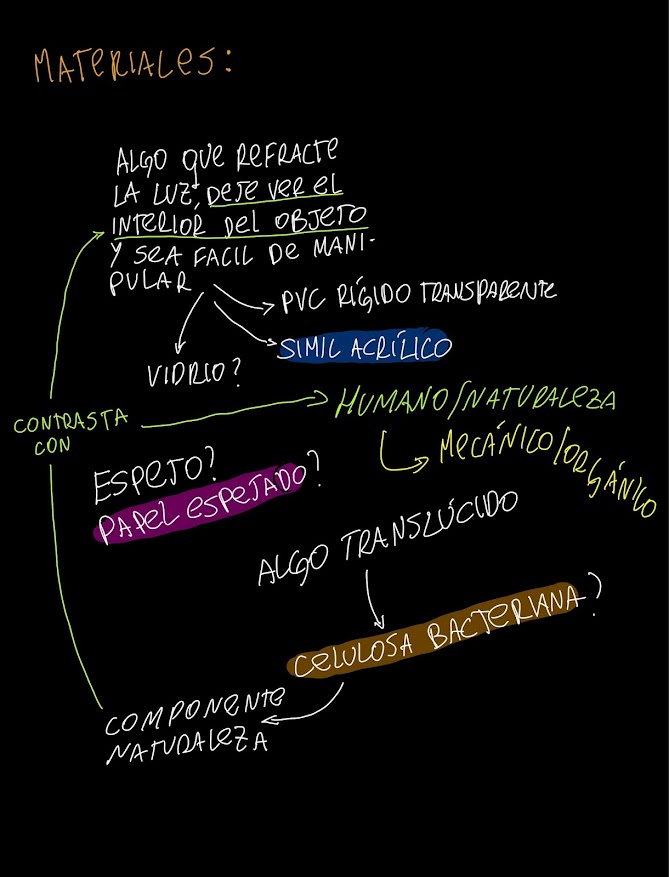 MATERIALES:
ALGO QUE REFRACTE
LA LUZ, DEJE VER EL
INTERIOR DEL OBJETO
Y SEA FACIL DE MANI-
PULAR
PVC RÍGIDO TRANSPARENTE
SIMIL ACRÍLICO
VIDRIO?
CONTRASTA
CON
HUMANO/NATURALEZA
MECÁNICO/ORGÁNICO
ESPEJO?
PAPEL ESPEJADO?
ALGO TRANSLÚCIDO
CELULOSA BACTERIANA?
COMPONENTE
NATURALEZA